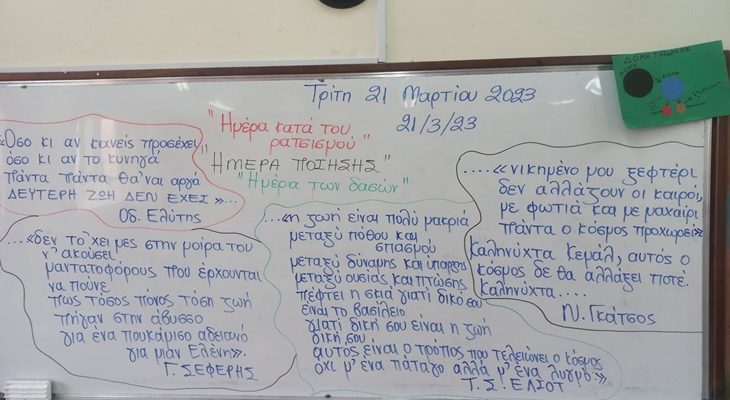 Τρίτη 21 Μαρτίου 2023
21/3/23
"Ημέρα κατά του
ρατσισμού"
"ΗΜΕΡΑ ΠΟΙΗΣΗΣ"
"Ημέρα των δασών"
«Όσο κι αν κανείς προσέχει
όσο κι αν το κυνηγά
πάντα πάντα θα 'ναι αργά
ΔΕΥΤΕΡΗ ΖΩΗ ΔΕΝ ΕΧΕΙ»...
Οδ. Ελύτης
...«δεν το 'χει μες στην μοίρα του
ν' ακούσει
μαντατοφόρους που έρχουνται
να πούνε
πως τόσος πόνος τόση ζωή
πήγαν στην άβυσσο
για ένα πουκάμισο αδειανό
για μιαν Ελένη».
Γ. ΣΕΦΕΡΗΣ
...«η ζωή είναι πολύ μακριά
μεταξύ πόθου και
σπασμού
μεταξύ δύναμης και ύπαρξης
μεταξύ ουσίας και πτώσης
πέφτει η σκιά γιατί δικό σου
είναι το βασίλειο
γιατί δική σου είναι η ζωή
δική σου
αυτός είναι ο τρόπος που τελειώνει ο κόσμος
όχι μ' ένα πάταγο αλλά μ' ένα λυγμό»
Τ. Σ. ΕΛΙΟΤ
....«νικημένο μου ξεφτέρι
δεν αλλάζουν οι καιροί,
με φωτιά και με μαχαίρι
πάντα ο κόσμος προχωρεί»
Καληνύχτα Κεμάλ, αυτός ο
κόσμος δε θα αλλάξει ποτέ.
Καληνύχτα....
Ν. Γκάτσος